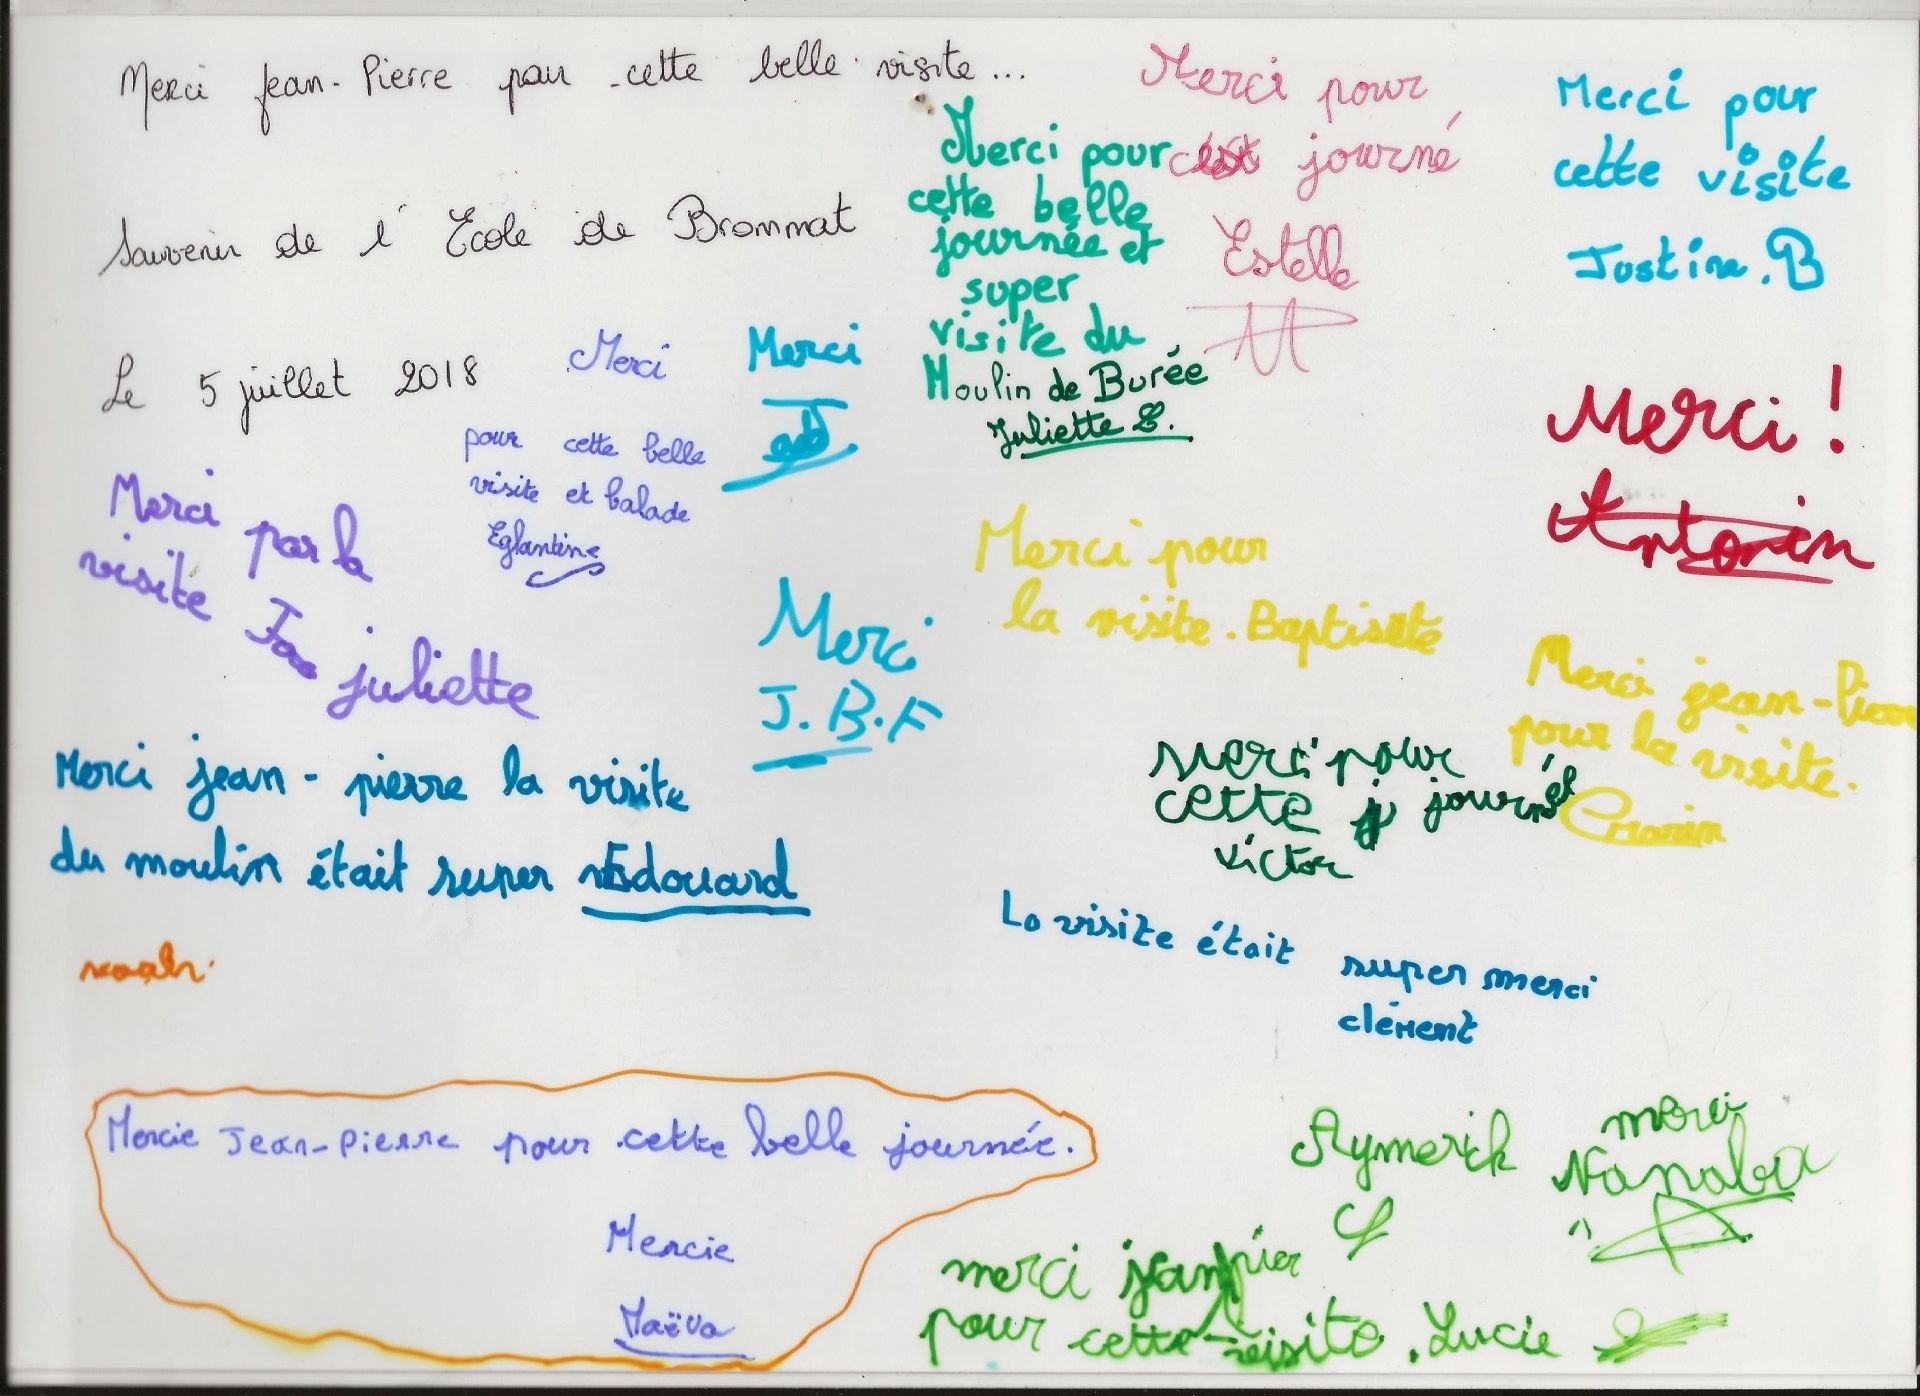 Merci Jean-Pierre pour cette belle visite...
Souvenir de l'École de Brommat
Le 5 juillet 2018
Merci
pour cette belle
visite et balade
Eglantine
Merci
Merci pour
cette belle
journée et
super
visite du
Moulin de Burée
Juliette L.
Merci pour
journé
Estelle
Merci pour
cette visite
Justine.B
Merci !
Antonin
Merci par la
visite
juliette
Merci
J.B.F
Merci pour
la visite. Baptiste
Merci jean-Pierre
pour la visite.
Merci jean-pierre la visite
du moulin était super Edouard
merci pour
cette journé
victor
noah.
La visite était super merci
clément
Mercie Jean-Pierre pour cette belle journée.
Mercie
Maëva
Aymerick
merci
Nanaba
merci jean pier
pour cette visite. Lucie